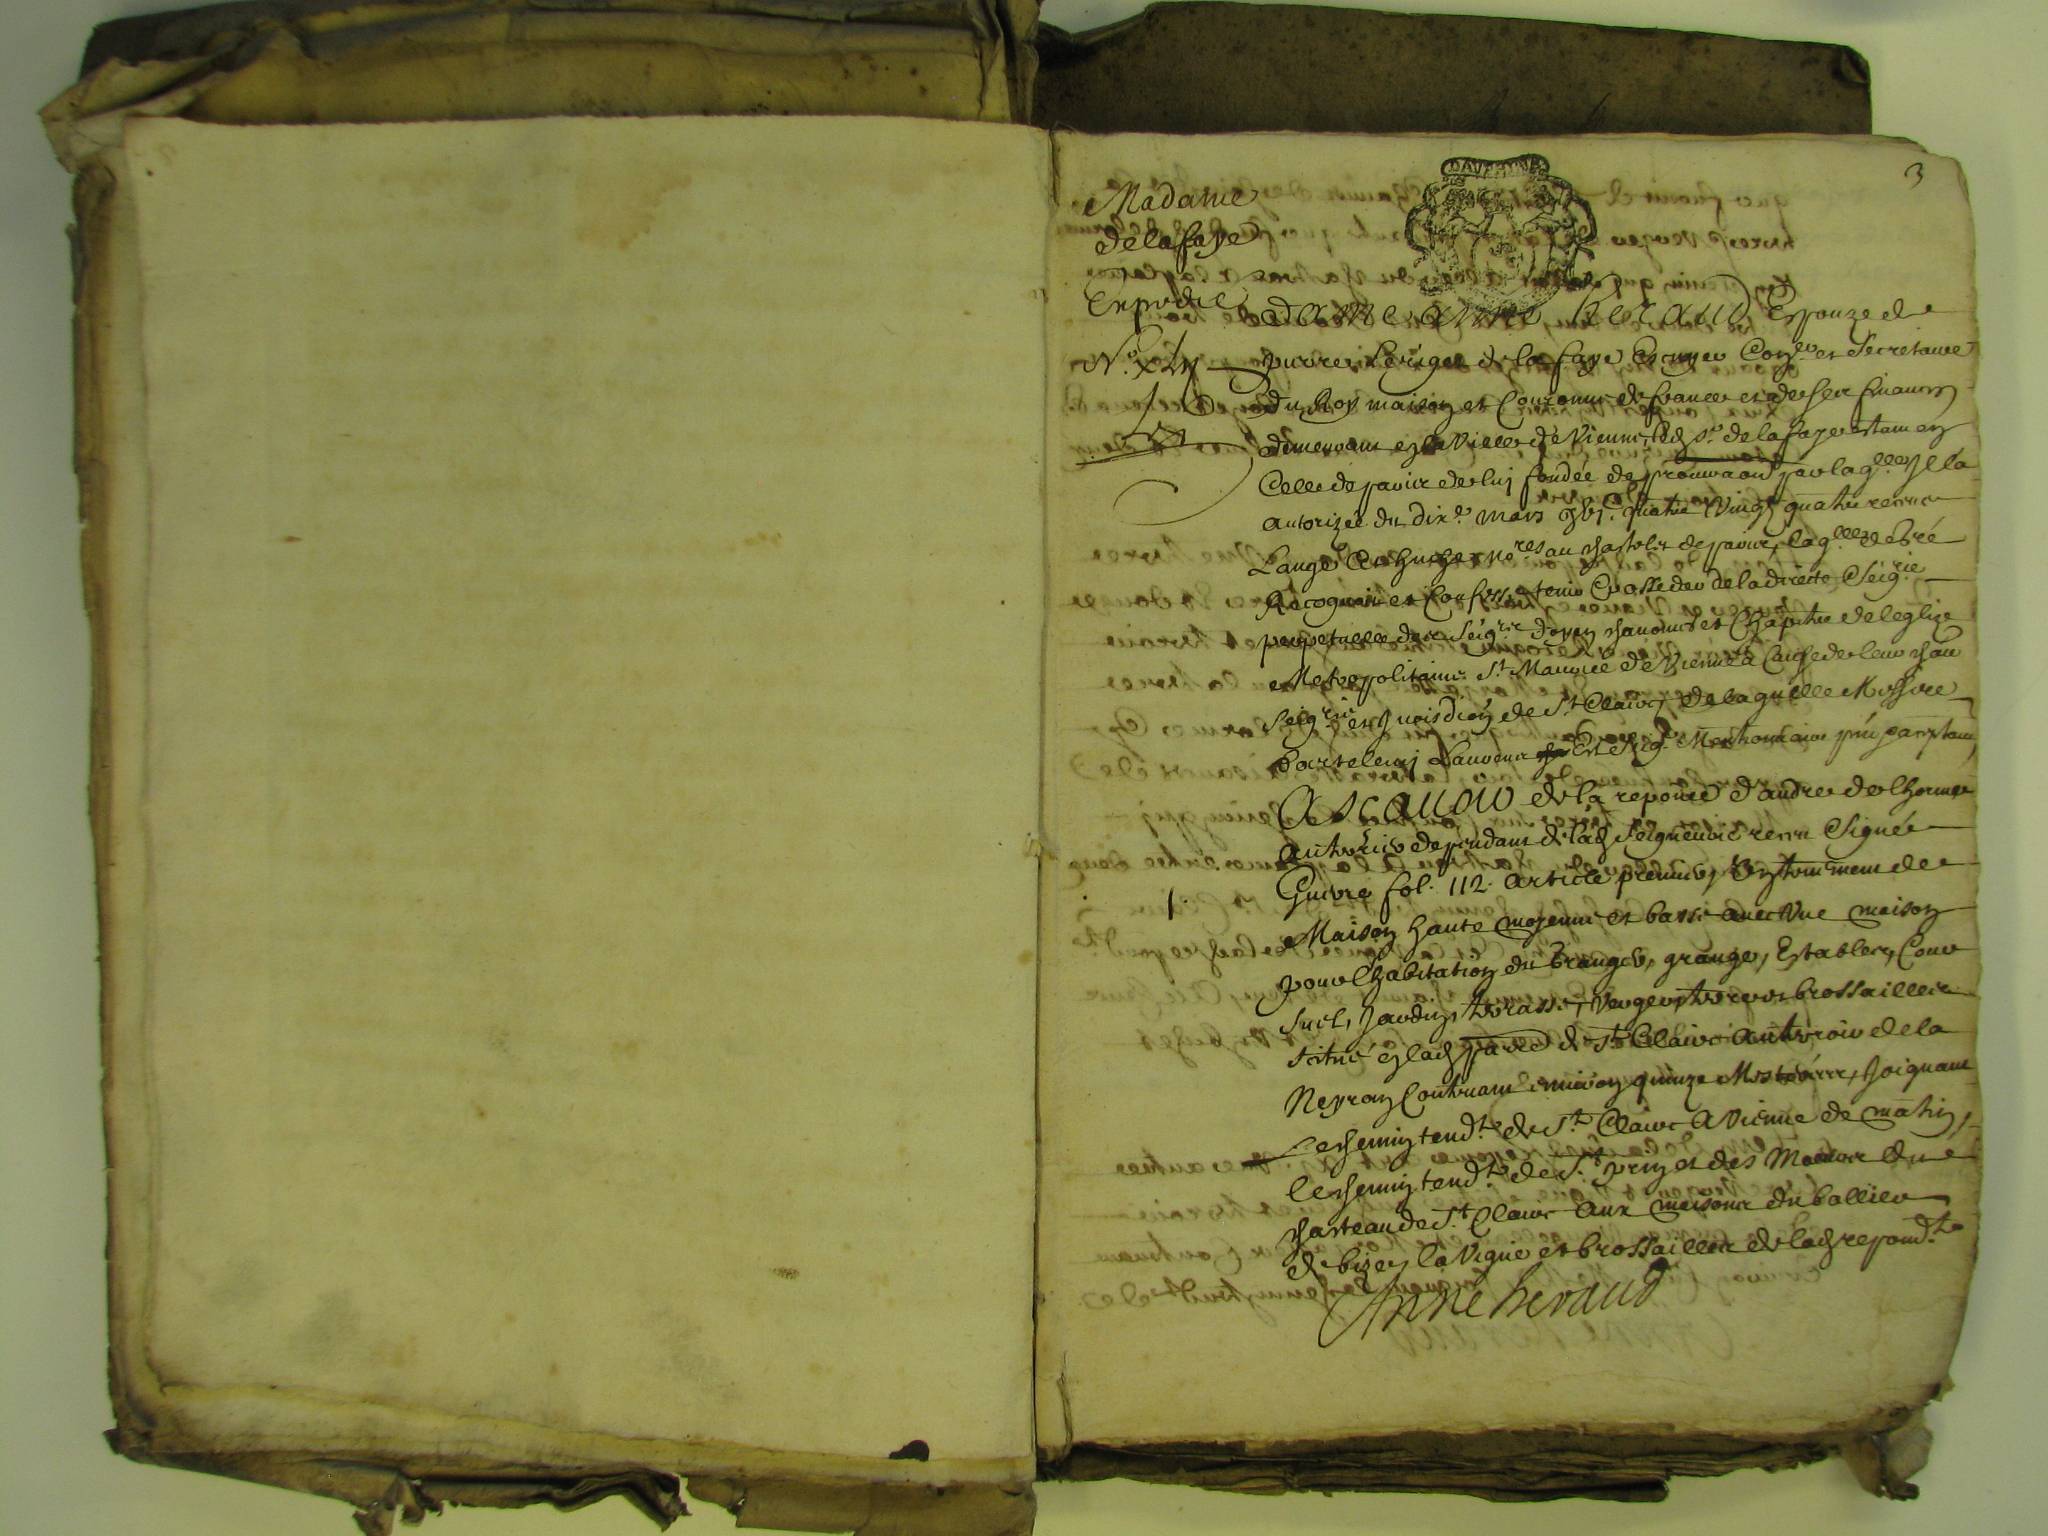 3
DAVPHINE
Madame
de la faye
Expediée
N.º xLVj
dame anne heraud Espouze de
pierre Leriget de la faye Escuyer Con.er et Secretaire
du Roy maison et Couronne de france et de ses finances
demeurant en la Ville de Vienne, led. s.r de la faye estant en
Celle de paris et de luy fondée de procura.on par laq.lle Il la
autorizée du dix.e mars quatre Vingt quatre receue
Lange No.res au chastelet de paris, laq.lle de gré
Recognoit et Confesse tenir Et posseder de la directe Seig.rie
perpetuelle des Seig.rs doyen chanoines et Chapitre de leglize
Metropolitaine S.t Maurice de Vienne a Cause de leur chau
Seig.rie et Jurisdi.on de S.t Clairc, de laquelle Messire
bartelemy Est Seig.r Mentionnaire
A Scauoir de la reponce d'andre de lhorme
au terrier dependant de lad. Seigneurie receu Signée
Guivre fol. 112. article premier, Un tenement de
1.
Maison haute moyenne et basse auec Vne maison
pour l'habitation du Granger, grange, Estables, Cour
Suel, Jardin, terrasse, Verger, terre et brossailles
scitué en lad. par.e de S.t Clairc au terroir de la
Neyran Contenant enuiron quinze Mesteres, Joignant
le chemin tend.t de S.t Clairc a Vienne de matin,
le chemin tend.t de S.t prin et des Maures du
chasteau de S.t Clairc aux maisons du ballier
de bize, la Vigne et brossailles de lad. repond.te
Anne heraud